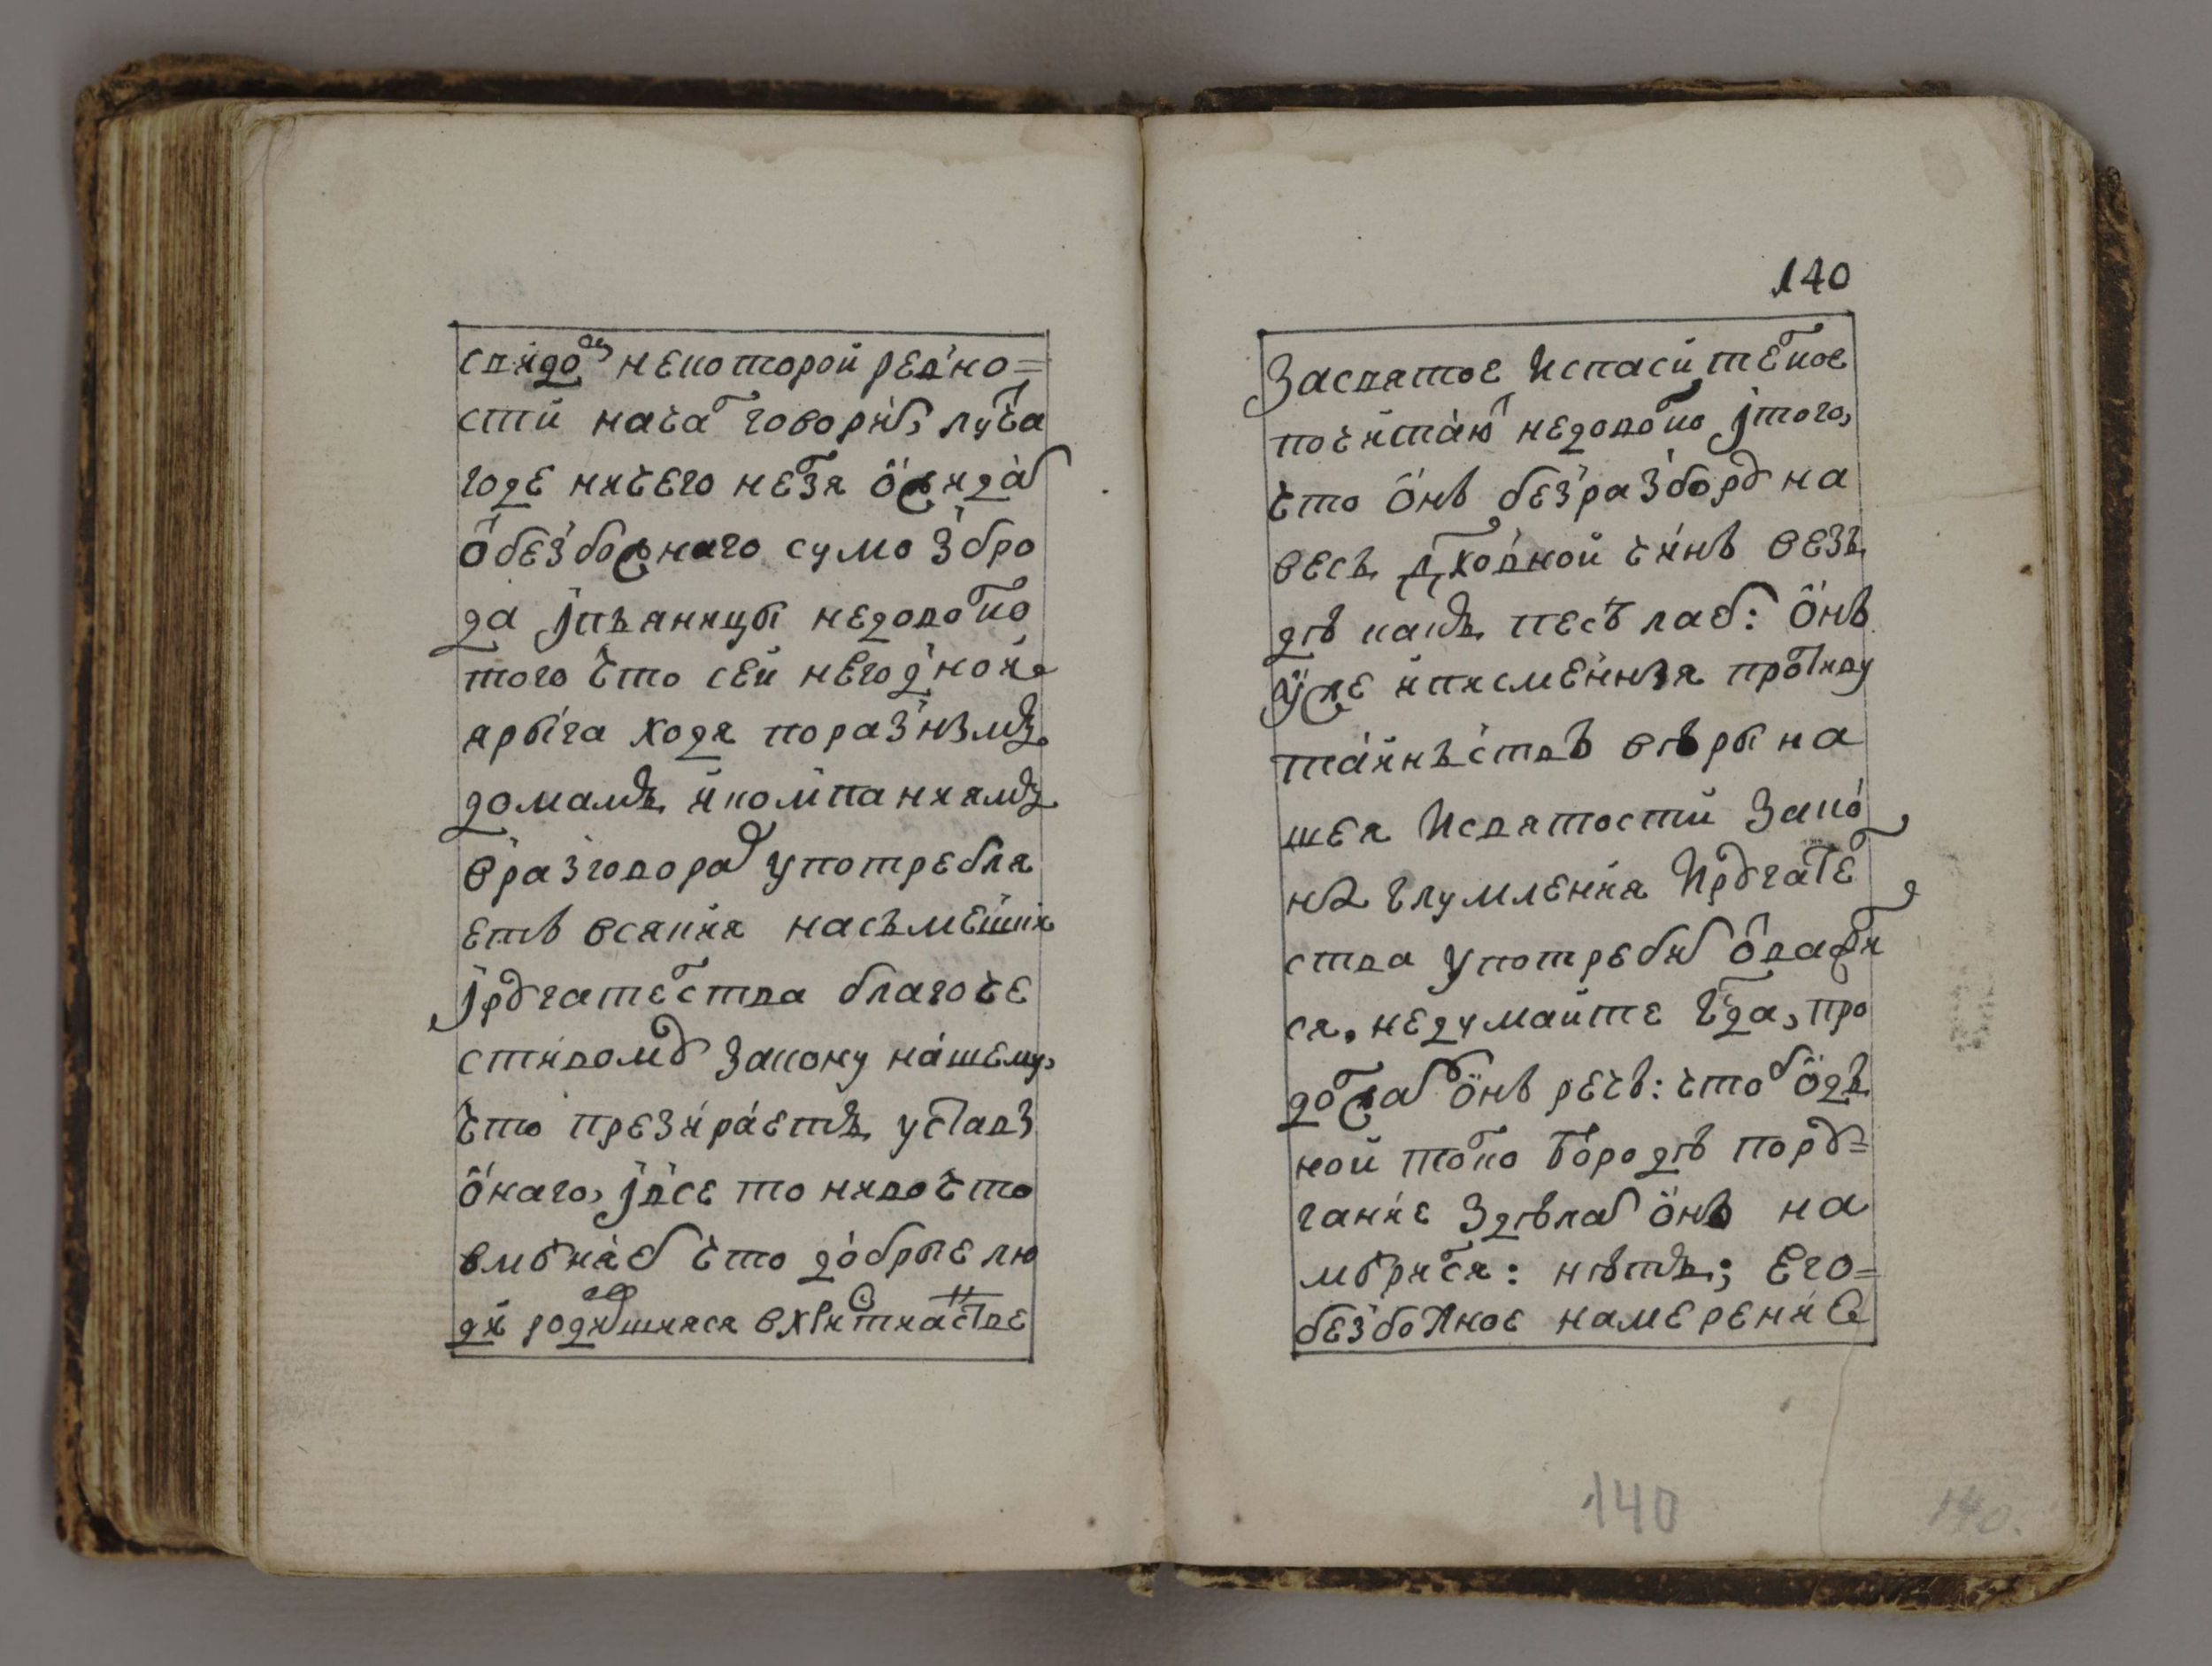 свидом некоторой ревно=
сти начал говорить, луча
годе ничего нелзя ожидат
о безбожнаго сумозбро
да и пьяницы недоволно
того что сей негодной я
ярыга ходя поразнымъ
домамъ икомпаниямъ
вразговорах употребля
етъ всякия насьмешки
иругателства благоче
стивому закону нашему,
что презираетъ уставы
онаго, ивсе то нивочто
вменяет что добрые лю
ди родившияся вхристиастве
140
Засвятое испасителное
почитают недоволно итого,
что онъ безразбору на
весь духовной чинъ везь
дѣ какъ песъ лает: онъ
уже иписменныя противу
таиньствъ вѣры на
шея исвятости зако
на глумления иругател
ства употребит
ся. недумайте гсда, про
должал онъ речь: что одь
ной толко бородѣ пору=
гание здѣлат онъ на
мерился: нѣтъ; его=
безбожное намерение
140
140.